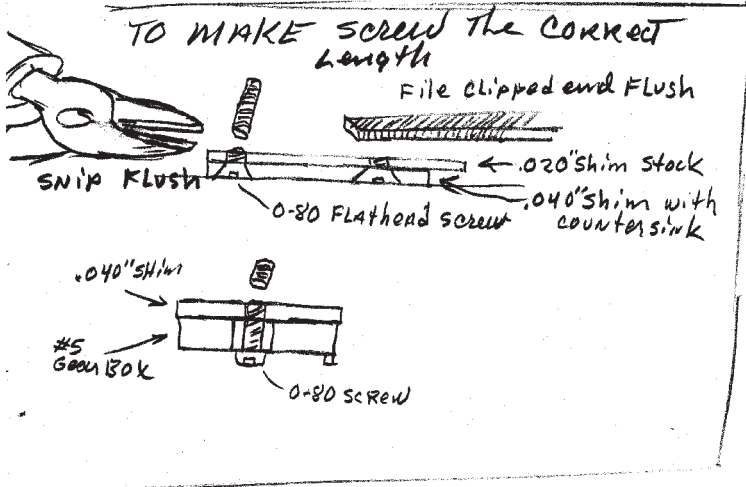 TO MAKE SCREW THE CORRECT
LENGTH
FILE CLIPPED END FLUSH
.020" SHIM STOCK
SNIP FLUSH
.040" SHIM WITH
COUNTERSINK
0-80 FLATHEAD SCREW
.040" SHIM
#5
GEAR BOX
0-80 SCREW